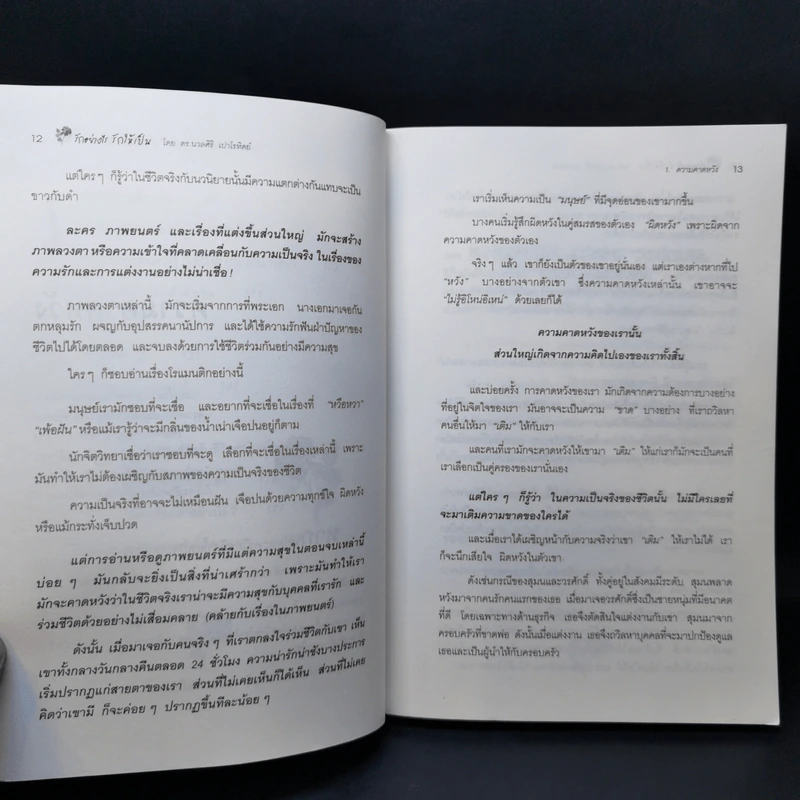 12 รักอย่างไร รักให้เป็น โดย ดร.นวลศิริ เปาโรหิตย์
แต่ใครๆ ก็รู้ว่าในชีวิตจริงกับนวนิยายนั้นมีความแตกต่างกันแทบจะเป็น
ขาวกับดำ
ละคร ภาพยนตร์ และเรื่องที่แต่งขึ้นส่วนใหญ่ มักจะสร้าง
ภาพลวงตา หรือความเข้าใจที่คลาดเคลื่อนกับความเป็นจริง ในเรื่องของ
ความรักและการแต่งงานอย่างไม่น่าเชื่อ!
ภาพลวงตาเหล่านี้ มักจะเริ่มจากการที่พระเอก นางเอกมาเจอกัน
ตกหลุมรัก ผจญกับอุปสรรคนานัปการ และได้ใช้ความรักฟันฝ่าปัญหาของ
ชีวิตไปได้โดยตลอด และจบลงด้วยการใช้ชีวิตร่วมกันอย่างมีความสุข
ใครๆ ก็ชอบอ่านเรื่องโรแมนติกอย่างนี้
มนุษย์เรามักชอบที่จะเชื่อ และอยากที่จะเชื่อในเรื่องที่ "หวือหวา"
"เพ้อฝัน" หรือแม้เรารู้ว่าจะมีกลิ่นของน้ำเน่าเจือปนอยู่ก็ตาม
นักจิตวิทยาเชื่อว่าเราชอบที่จะดู เลือกที่จะเชื่อในเรื่องเหล่านี้ เพราะ
มันทำให้เราไม่ต้องเผชิญกับสภาพของความเป็นจริงของชีวิต
ความเป็นจริงที่อาจจะไม่เหมือนฝัน เจือปนด้วยความทุกข์ใจ ผิดหวัง
หรือแม้กระทั่งเจ็บปวด
แต่การอ่านหรือดูภาพยนตร์ที่มีแต่ความสุขในตอนจบเหล่านี้
บ่อยๆ มันกลับจะยิ่งเป็นสิ่งที่น่าเศร้ากว่า เพราะมันทำให้เรา
มักจะคาดหวังว่าในชีวิตจริงเราน่าจะมีความสุขกับบุคคลที่เรารัก และ
ร่วมชีวิตด้วยอย่างไม่เสื่อมคลาย (คล้ายกับเรื่องในภาพยนตร์)
ดังนั้น เมื่อมาเจอกับคนจริงๆ ที่เราตกลงใจร่วมชีวิตกับเขา เห็น
เขาทั้งกลางวันกลางคืนตลอด 24 ชั่วโมง ความน่ารักน่าชังบางประการ
เริ่มปรากฏแก่สายตาของเรา ส่วนที่ไม่เคยเห็นก็ได้เห็น ส่วนที่ไม่เคย
คิดว่าเขามี ก็จะค่อยๆ ปรากฏขึ้นทีละน้อยๆ
1. ความคาดหวัง 13
เราเริ่มเห็นความเป็น "มนุษย์" ที่มีจุดอ่อนของเขามากขึ้น
บางคนเริ่มรู้สึกผิดหวังในคู่สมรสของตัวเอง "ผิดหวัง" เพราะผิดจาก
ความคาดหวังของตัวเอง
จริงๆ แล้ว เขาก็ยังเป็นตัวของเขาอยู่นั่นเอง แต่เราเองต่างหากที่ไป
"หวัง" บางอย่างจากตัวเขา ซึ่งความคาดหวังเหล่านั้น เขาอาจจะ
"ไม่รู้อีโหน่อีเหน่" ด้วยเลยก็ได้
ความคาดหวังของเรานั้น
ส่วนใหญ่เกิดจากความคิดไปเองของเราทั้งสิ้น
และบ่อยครั้ง การคาดหวังของเรา มักเกิดจากความต้องการบางอย่าง
ที่อยู่ในจิตใจของเรา มันอาจจะเป็นความ "ขาด" บางอย่าง ที่เราถวิลหา
คนอื่นให้มา "เติม" ให้กับเรา
และคนที่เรามักจะคาดหวังให้เขามา "เติม" ให้แก่เราก็มักจะเป็นคนที่
เราเลือกเป็นคู่ครองของเรานั่นเอง
แต่ใครๆ ก็รู้ว่า ในความเป็นจริงของชีวิตนั้น ไม่มีใครเลยที่
จะมาเติมความขาดของใครได้
และเมื่อเราได้เผชิญหน้ากับความจริงว่าเขา "เติม" ให้เราไม่ได้ เรา
ก็จะนึกเสียใจ ผิดหวังในตัวเขา
ดังเช่นกรณีของสุมนและวรศักดิ์ ทั้งคู่อยู่ในสังคมมีระดับ สุมนพลาด
หวังมาจากคนรักคนแรกของเธอ เมื่อมาเจอวรศักดิ์ซึ่งเป็นชายหนุ่มที่มีอนาคต
ที่ดี โดยเฉพาะทางด้านธุรกิจ เธอจึงตัดสินใจแต่งงานกับเขา สุมนมาจาก
ครอบครัวที่ขาดพ่อ ดังนั้นเมื่อแต่งงาน เธอจึงถวิลหาบุคคลที่จะมาปกป้องดูแล
เธอและเป็นผู้นำให้กับครอบครัว